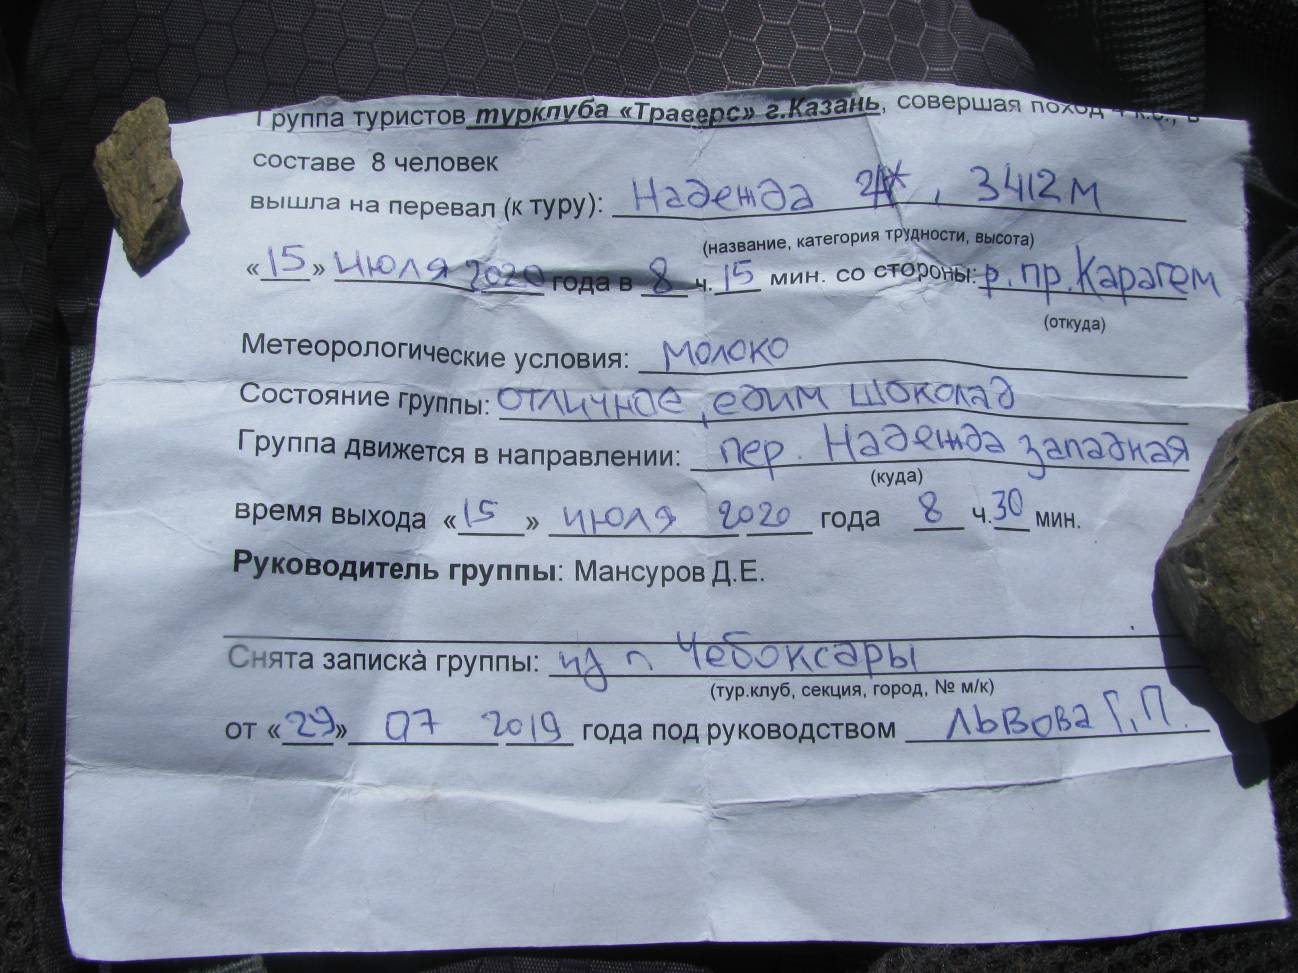 Группа туристов турклуба «Траверс» г.Казань, совершая поход 4 к.с., в
составе 8 человек
вышла на перевал (к туру): Надежда , 3412м
(название, категория трудности, высота)
«15» июля 2020 года в 8 ч. 15 мин. со стороны: р. пр. Карагем
(откуда)
Метеорологические условия: молоко
Состояние группы: отличное, едим шоколад
Группа движется в направлении: пер. Надежда западная
(куда)
время выхода «15» июля 2020 года 8 ч. 30 мин.
Руководитель группы: Мансуров Д.Е.
Снята записка группы: из г Чебоксары
(тур.клуб, секция, город, № м/к)
от «29» 07 2019 года под руководством Львова Г.П.